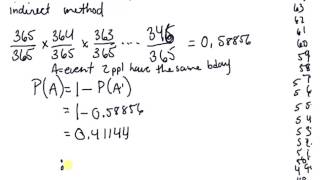 indirect method
365/365 × 364/365 × 363/365 ... 346/365 = 0.58856
A=event 2 ppl have the same bday
P(A) = 1 - P(A')
= 1 - 0.58856
= 0.41144
63
62
61
60
59
58
57
56
55
54
53
52
51
50
49